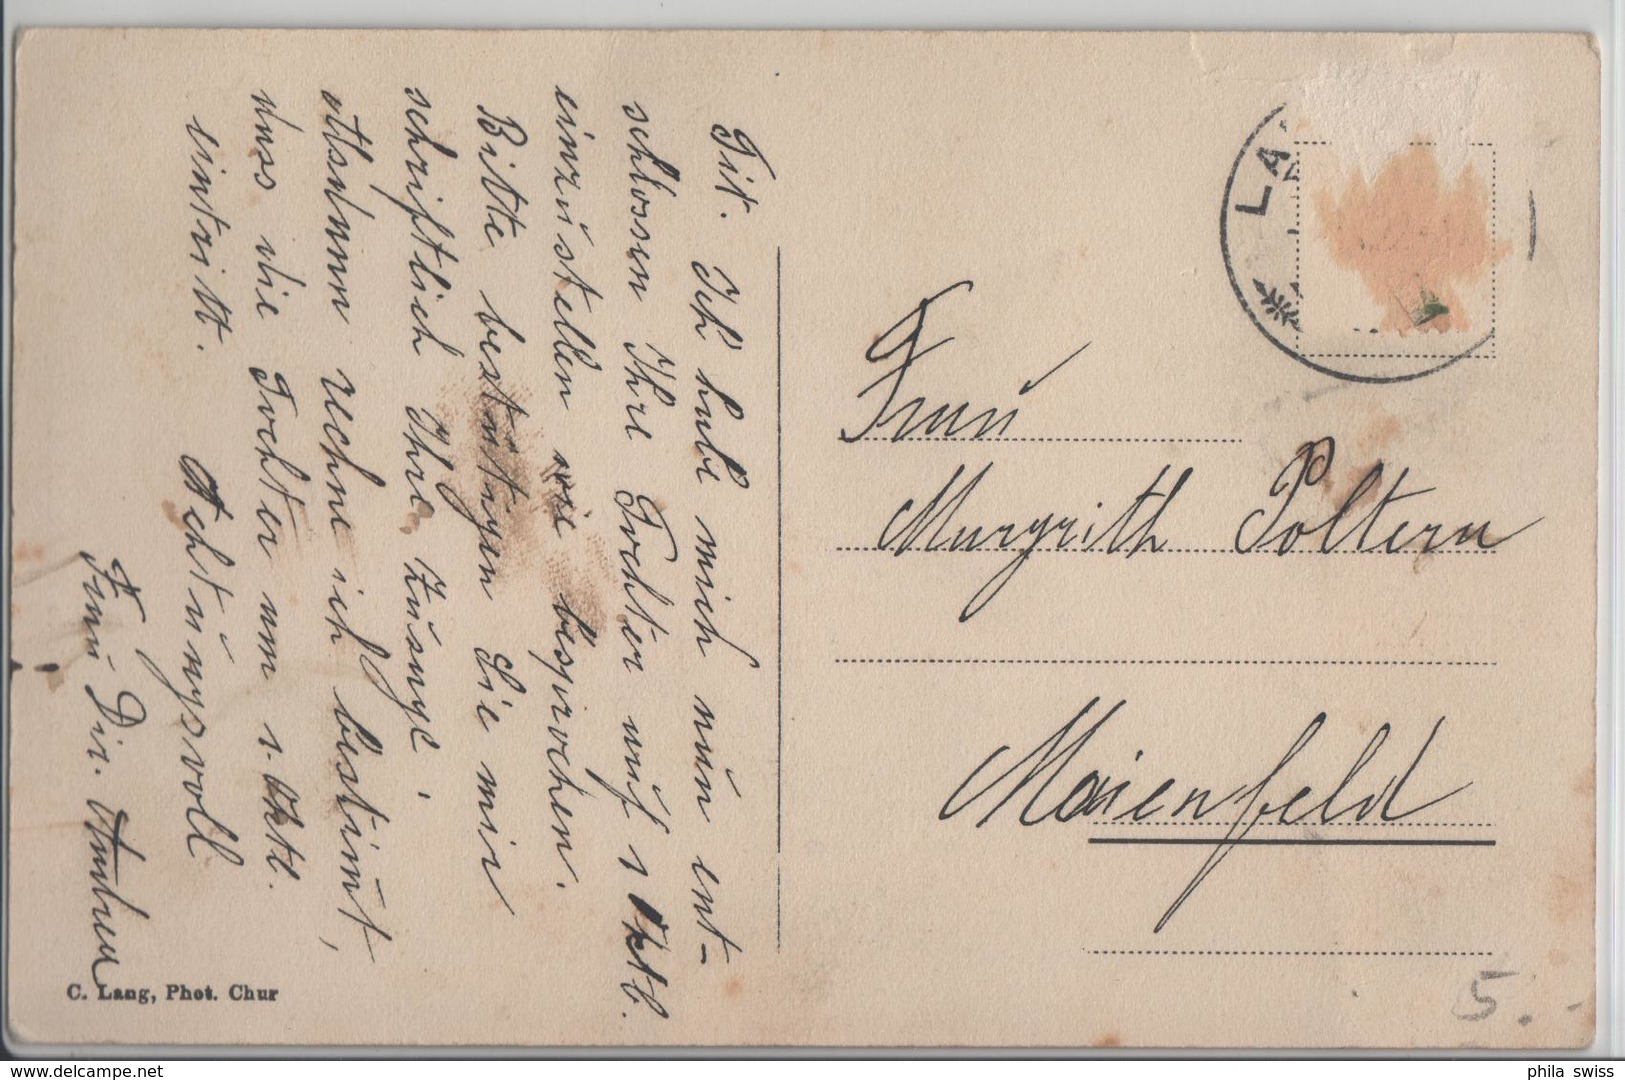 Tit. Ich habe mich nun ent-
schlossen Ihre Tochter auf 1 Oktb.
einzustellen wie besprochen.
Bitte bestätigen Sie mir
schriftlich Ihre Zusage,
alsdann rechne ich bestimt,
dass die Tochter am 1. Okt.
eintritt. Achtungsvoll
Frau Dir.
C. Lang, Phot. Chur
LA
Frau
Margrith Poltera
Maienfeld
5.-
delcampe.net
phila swiss